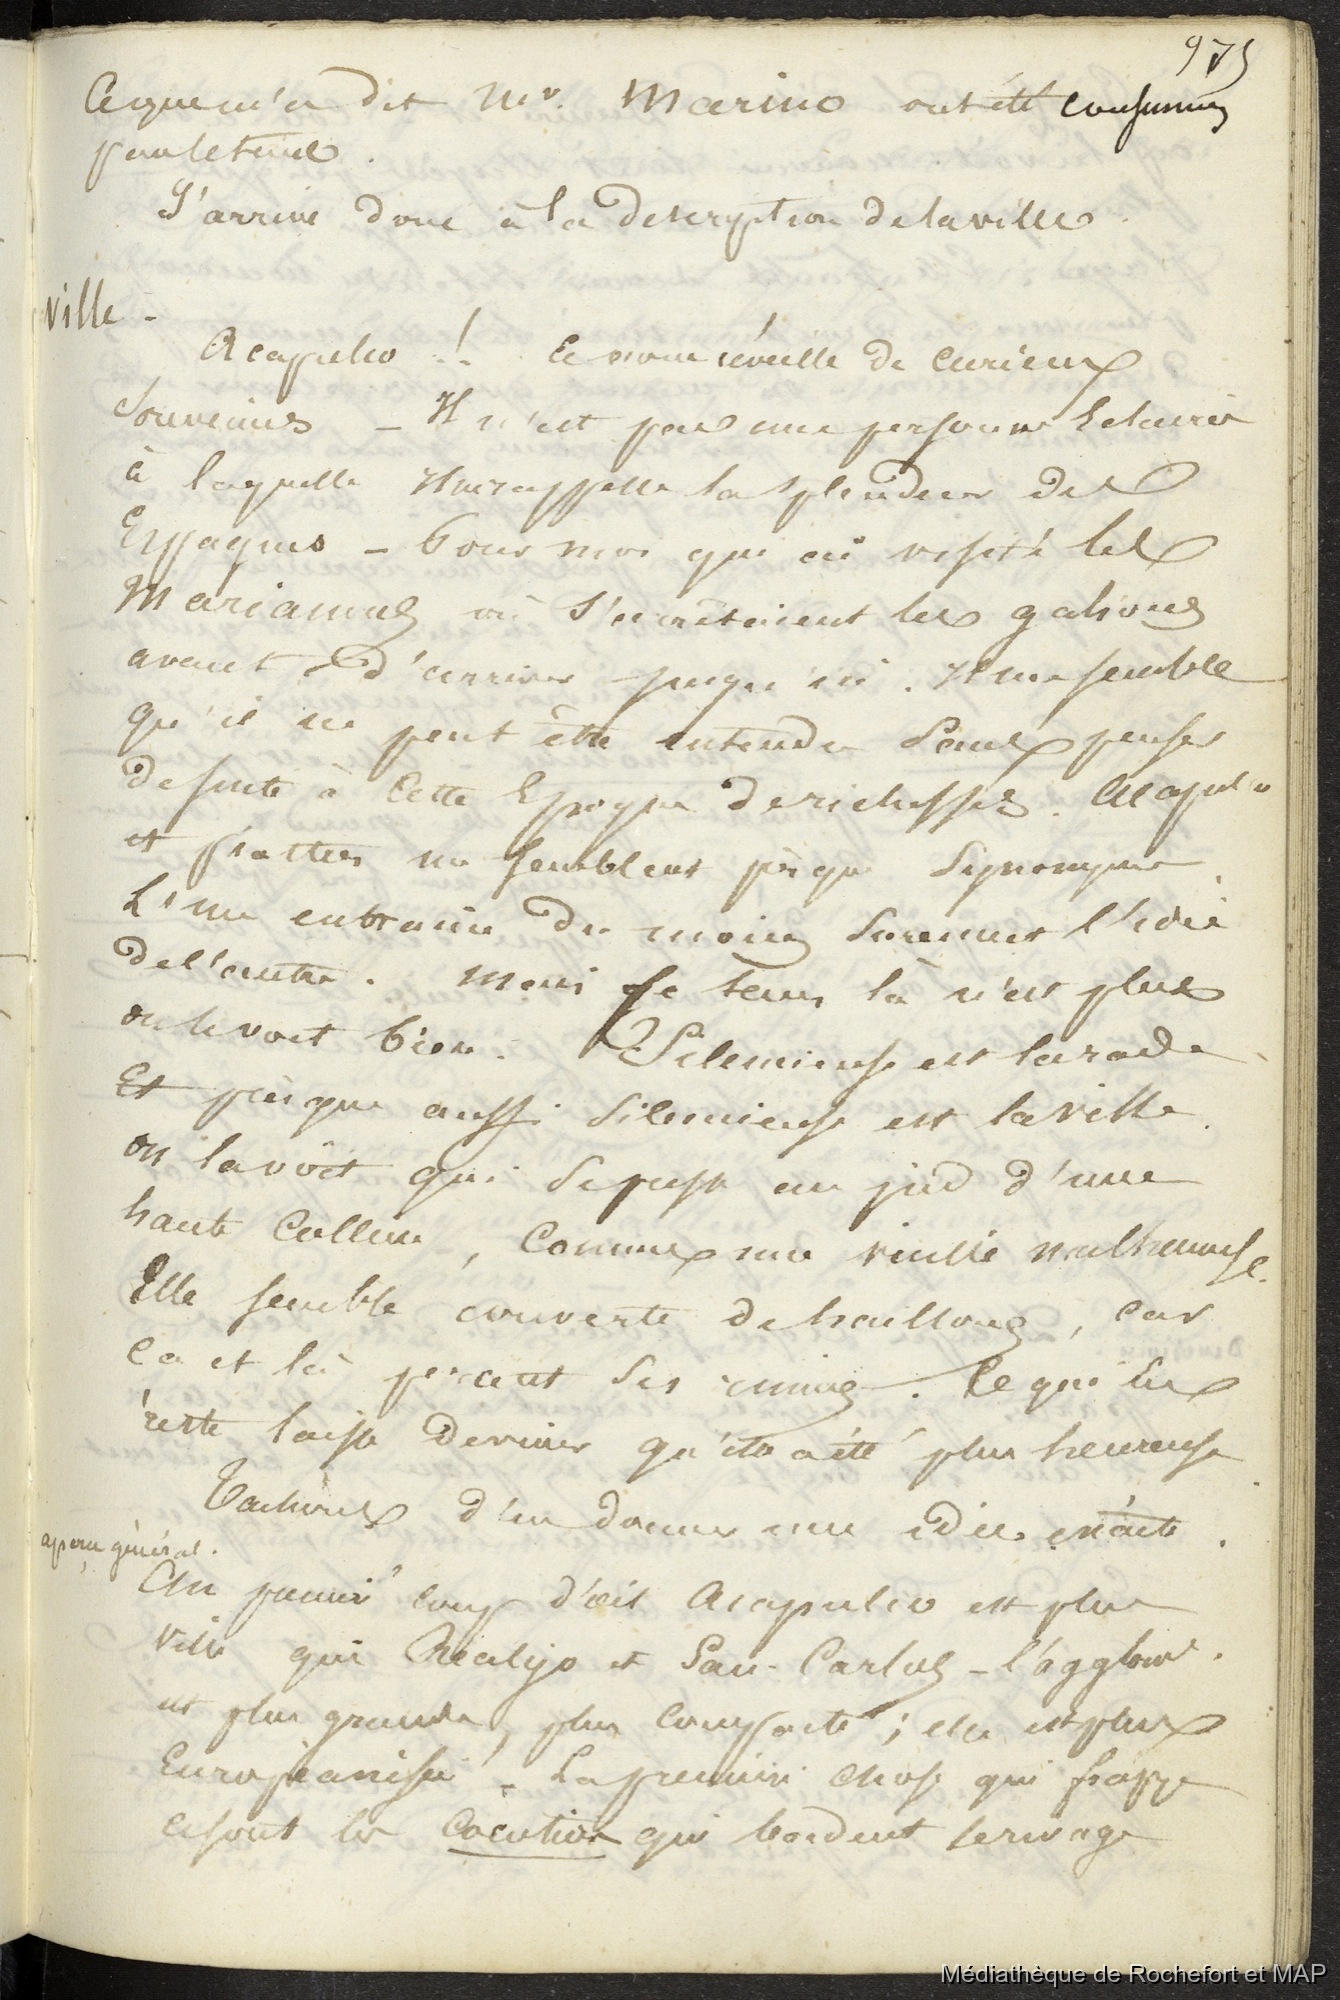 975
Ce que m'a dit Mr. Marino ont été consumés
par le tems.
J'arrive donc à la description de la ville.
ville -
Acapulco !. Ce nom réveille de curieux
Souvenirs _ Il n'est pas une personne Eclairée
à laquelle Il ne rappelle la splendeur des
Espagnes _ Pour moi qui ai visité les
Mariannes où s'arrêtoient les galions
avant d'arriver jusqu'ici. Il me semble
qu'il ne peut être entendu Sans penser
de suite à Cette Epoque de richesses. Acapulco
et piastres me semblent presque Synonyme
L'une entraine du moins surement l'idée
de l'autre. Mais Ce tems là n'est plus
on le voit bien. Silencieuse est la rade
Et presque aussi silencieuse est la ville.
on la voit qui Se presse au pied d'une
haute Colline, Comme une vieille malheureuse.
Elle semble couverte de haillons, Car
Ca et là percent des ruines. Ce qui lui
reste laisse deviner qu'elle a été plus heureuse.
Tachons d'en donner une idée exacte.
aperçu général.
Au premier coup d'œil Acapulco est plus
ville que Réalijo et San-Carlos _ l'agglomé.
est plus grande, plus compacte; elle est plus
Européanisée _ La première chose qui frappe
ce sont les Cocotiers qui bordent le rivage
Médiathèque de Rochefort et MAP